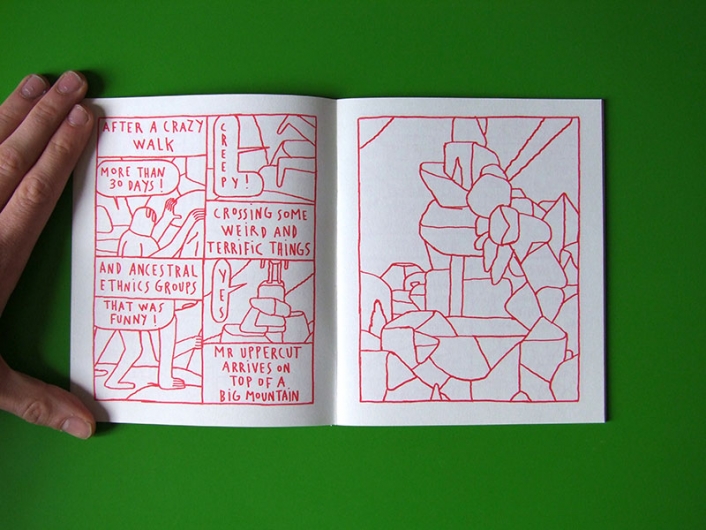 AFTER A CRAZY
WALK
MORE THAN
30 DAYS!
CREEPY!
CROSSING SOME
WEIRD AND
TERRIFIC THINGS
AND ANCESTRAL
ETHNICS GROUPS
THAT WAS
FUNNY!
YES
MR UPPERCUT
ARRIVES ON
TOP OF A
BIG MOUNTAIN